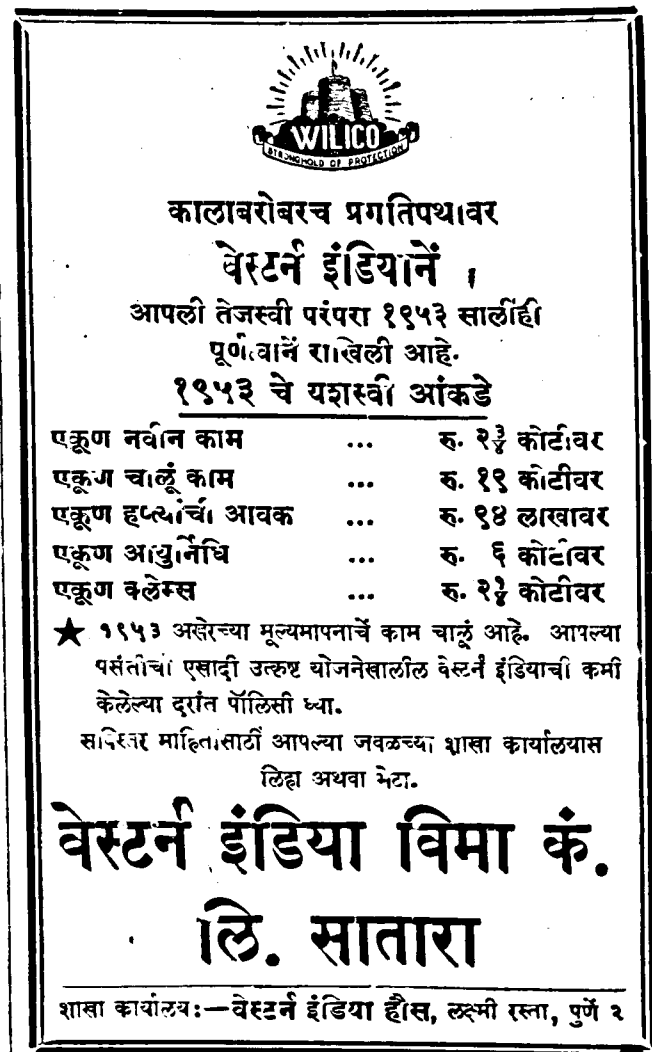 WILICO
STRONGHOLD OF PROTECTION
कालाबरोबरच प्रगतिपथावर
वेस्टर्न इंडियानें
आपली तेजस्वी परंपरा १९५३ सालींही
पूर्णत्वानें राखिली आहे.
१९५३ चे यशस्वी आंकडे
एकूण नवीन काम ... रु. २¾ कोटीवर
एकूण चालूं काम ... रु. १९ कोटीवर
एकूण हप्त्यांची आवक ... रु. ९४ लाखावर
एकूण आयुर्निधि ... रु. ६ कोटीवर
एकूण क्लेम्स ... रु. २¼ कोटीवर
★ १९५३ अखेरच्या मूल्यमापनाचें काम चालूं आहे. आपल्या
पसंतीची एखादी उत्कृष्ट योजनेखालील वेस्टर्न इंडियाची कमी
केलेल्या दरांत पॉलिसी घ्या.
सविस्तर माहितीसाठीं आपल्या जवळच्या शाखा कार्यालयास
लिहा अथवा भेटा.
वेस्टर्न इंडिया विमा कं.
लि. सातारा
शाखा कार्यालय:—वेस्टर्न इंडिया हौस, लक्ष्मी रस्ता, पुणें २